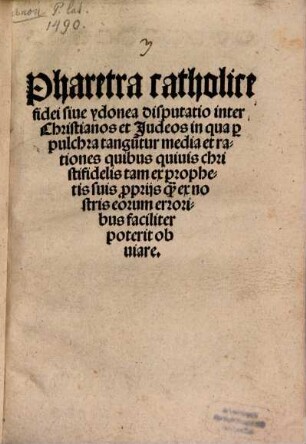 P. lat.
1490.
Pharetra catholice
fidei siue ydonea disputatio inter
Christianos et Judeos in qua ꝑ
pulchra tangūtur media et ra-
tiones quibus quiuis chri
stifidelis tam ex prophe-
tis suis ꝓprijs qꝫ ex no
stris eorum errori-
bus faciliter
poterit ob
uiare.